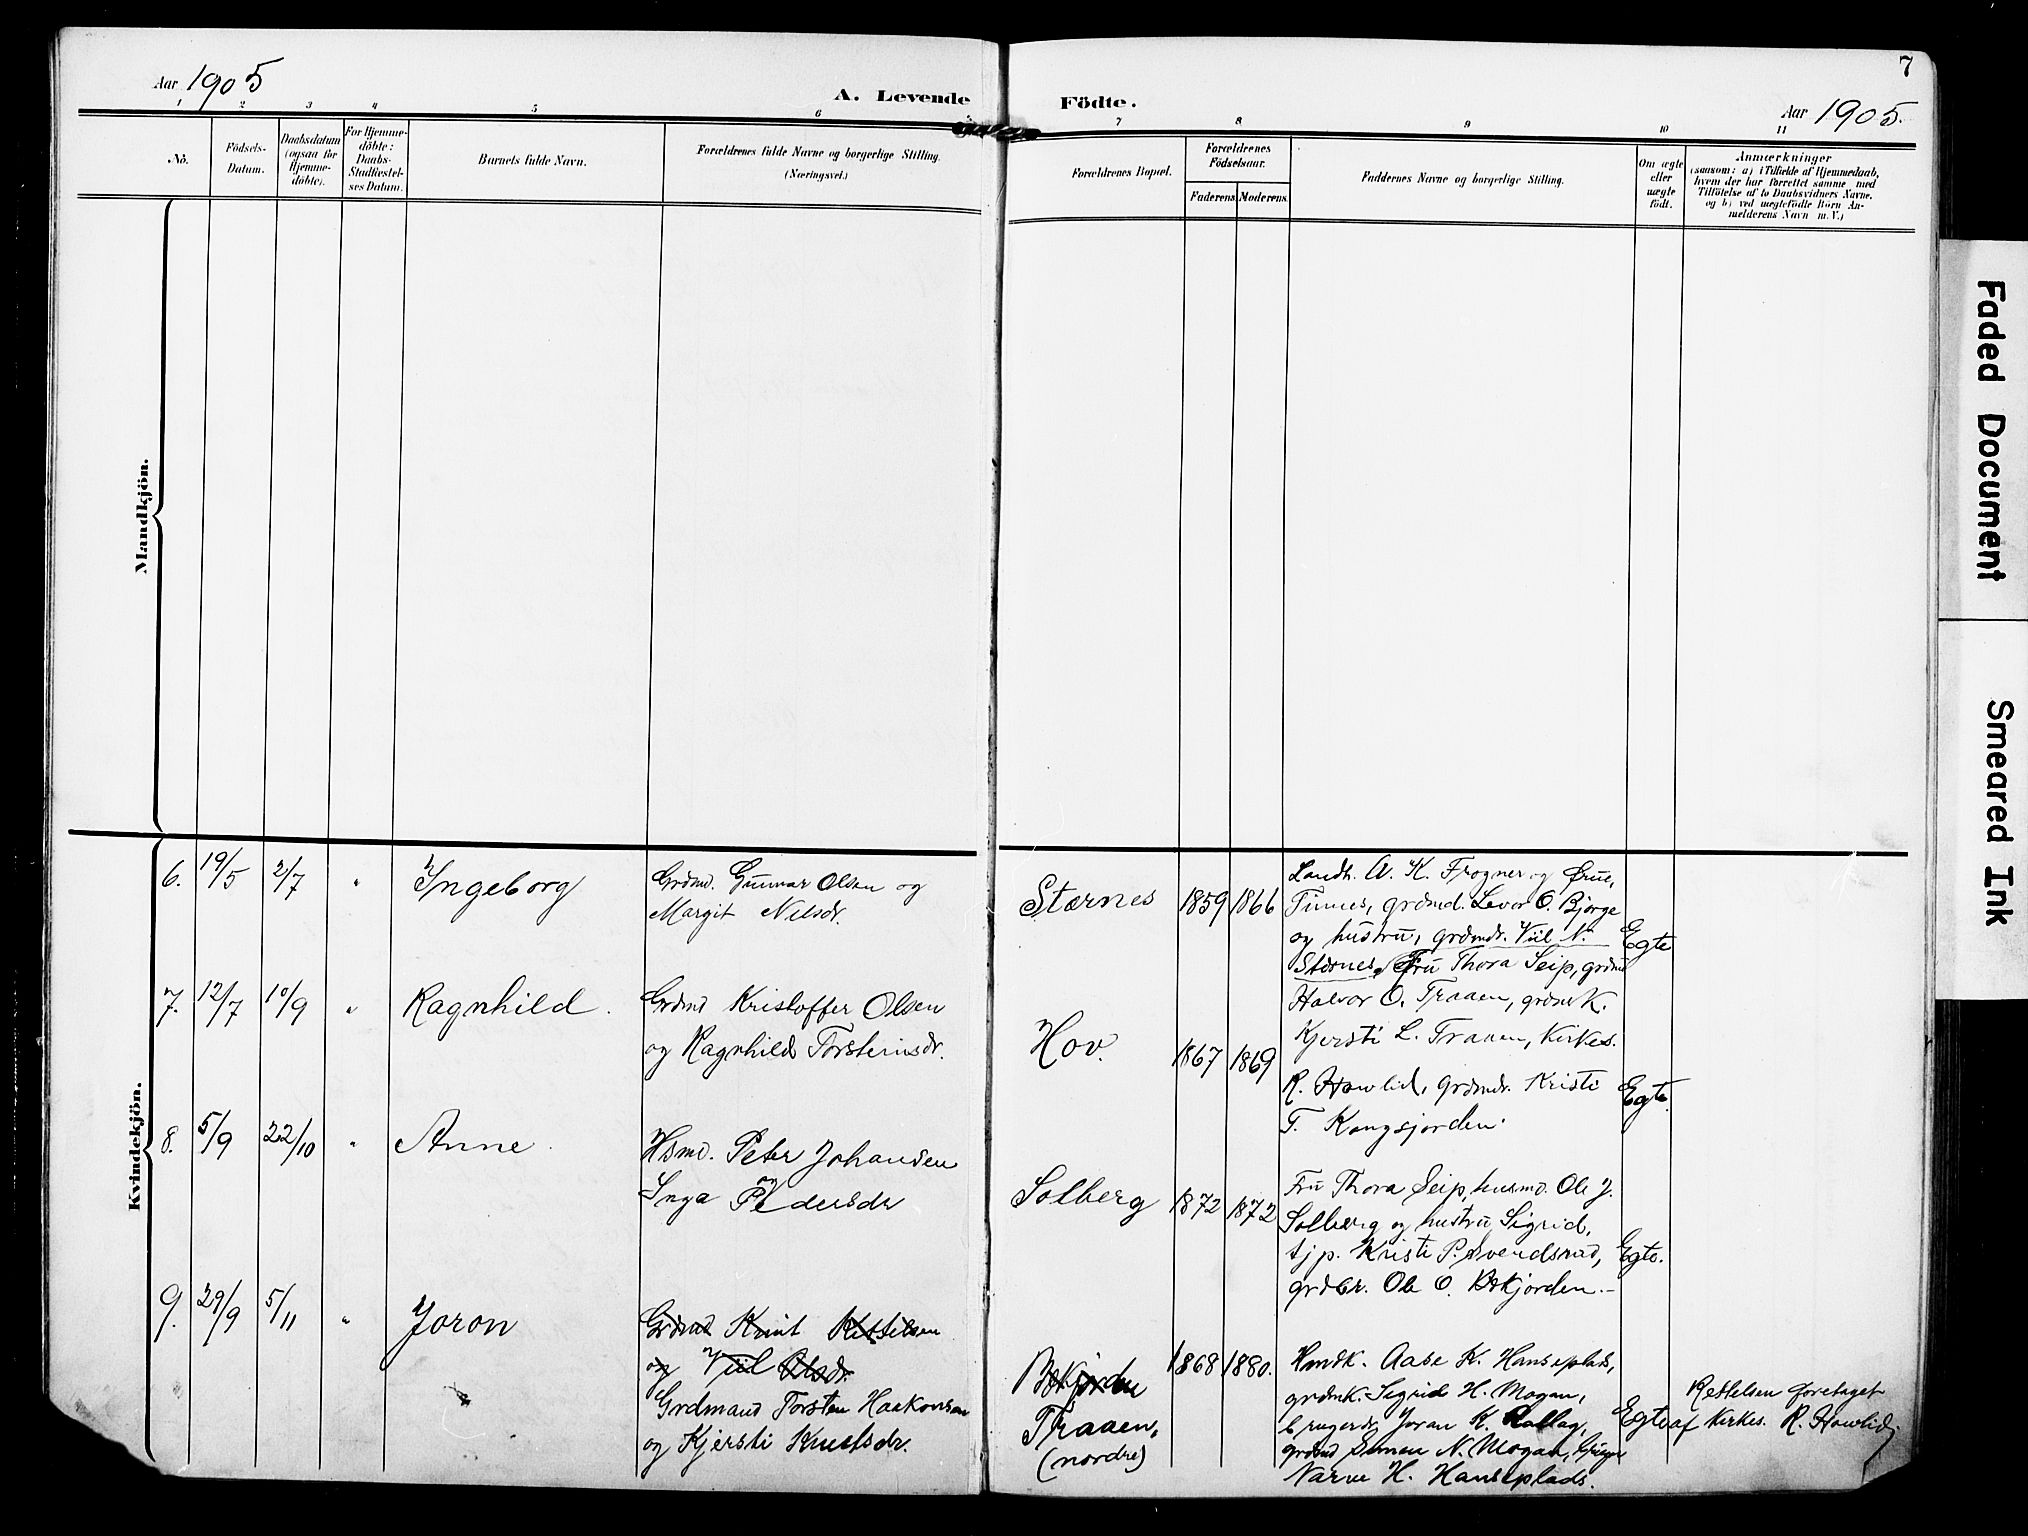 Aar 1905
A. Levende
Födte.
7
Aar 1905.
1 2 3 4 5 6 7 8 9 10 11
No.
Födsels-
Datum.
Daabsdatum
(ogsaa for
Hjemme-
döbte).
For Hjemme-
döbte:
Daabs-
Stadfæstel-
ses Datum.
Barnets fulde Navn.
Forældrenes fulde Navne og borgerlige Stilling.
(Næringsvei.)
Forældrenes Bopæl.
Forældrenes
Födselsaar.
Faderens.
Moderens.
Faddernes Navne og borgerlige Stilling.
Om ægte
eller
uægte
födt.
Anmærkninger
(saasom: a) i Tilfælde af Hjemmedaab,
hvem der har forrettet samme med
Tilföielse af to Daabsvidners Navne,
og b) ved uægtefödte Börn An-
melderens Navn m. V.)
Mandkjön.
Kvindekjön.
6. 19/5 2/7 " Ingeborg
Grdmd. Gunnar Olsen og
Margit Nilsdr.
Stærnes 1859 1866
Landh. A. K. Frogner og Frue,
Tunes, grdmd. Levor O. Bjørge
og hustru, grdmdr. Viil N.
Stærnes, Fru Thora Seip, grdmd
Egte
7. 12/7 10/9 " Ragnhild.
Grdmd Kristoffer Olsen
og Ragnhild Torsteinsdr.
Hov. 1867 1869
Halvor O. Traaen, grdmk.
Kjersti L. Traaen, Kirkes.
R. Howlid, grdmdr. Kristi
T. Kongsjorden.
Egte.
8. 5/9 22/10 " Anne.
Hsmd. Peter Johansen
og
Inga Pedersdr
Solberg 1872 1872
Fru Thora Seip, husmd. Ole J.
Solberg og hustru Sigrid,
tjp. Kristi P. Svendsrud,
grdbr. Ole O. Bækjorden.-
Egte.
9. 29/9 5/11 " Joron
Grdmd Knut Kittilsen
og Viil Olsdr.
Grdmand Torsten Haakonsen
og Kjersti Knutsdr.
Bækjorden
Traaen,
(nordre)
1868 1880.
Hmdk. Aase K. Hanseplads,
grdmk. Sigrid H. Mogan,
brugerdr. Joran K. Rollag,
grdmd Simen N. Mogan,
Narve H. Hanseplads.
Egte
Rettelsen foretaget
af Kirkes. R. Howlid
Faded Document
Smeared Ink